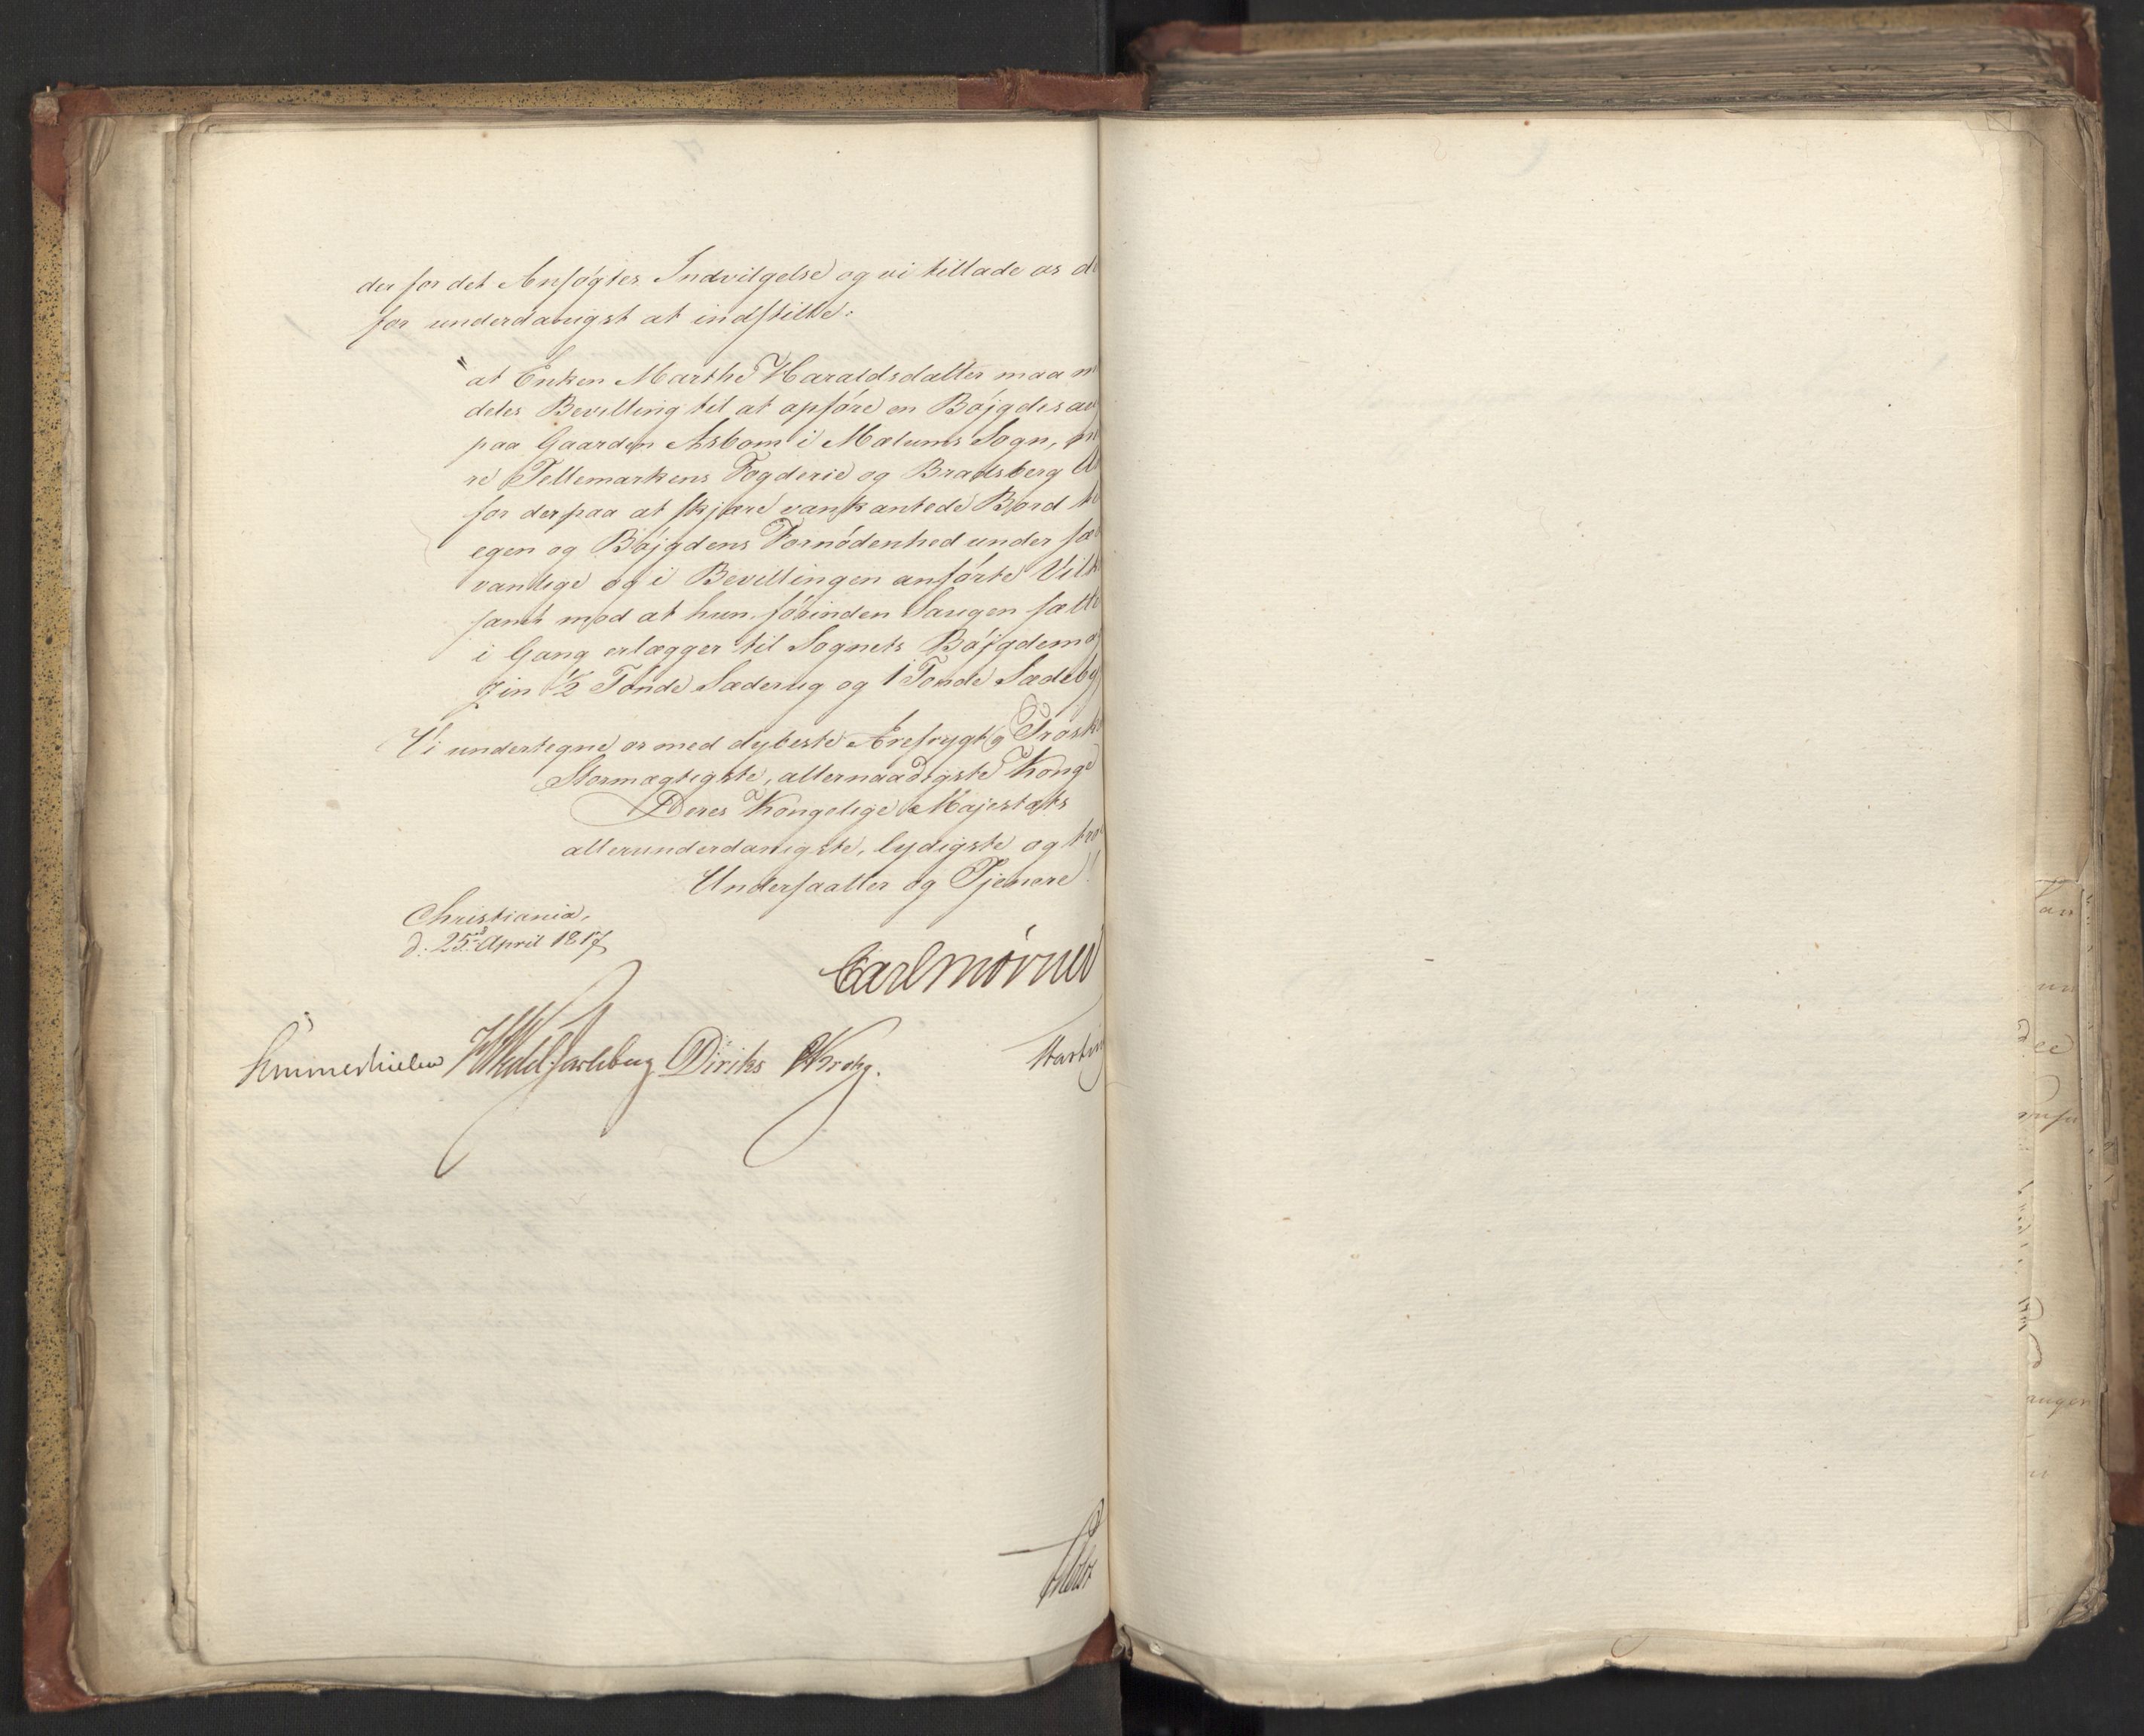 der for det Ansøgtes Indvilgelse og vi tillade os d
for underdanigst at indstille:
"at Enken Marthe Haraldsdatter maa m
deles Bevilling til at opføre en Bøjgdesau
paa Gaarden Asbom i Mælums Sogn, n
re Tellemarkens Fogderie og Bradsberg A
for derpaa at skjære vankantede Bord ti
egen og Bøjgdens Fornødenhed under sæ
vanlige og i Bevillingen anførte Vilk
samt mod at hun, førinden Saugen sætte
i Gang erlægger til Sognets Bøjgdema
zin 1/2 Tønde Sæderug og 1 Tønde Sædeby
Vi undertegne os med dybeste Ærefrygt og Trosk
Stormægtigste, allernaadigste Konge
Deres Kongelige Majestæts
allerunderdanigste, lydigste og tro
Undersaatter og Tjenere!
Christiania,
d. 25 April 1817
Carl Mörner
Sommerhielm HWedel Jarlsberg Diriks CKrohg.
Hartvig